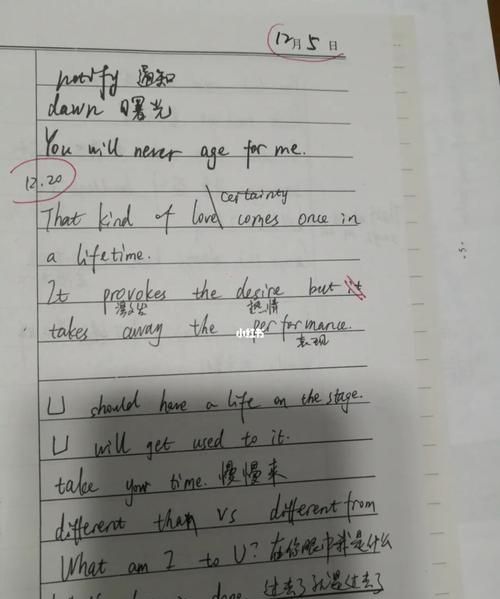 12月5日
notify 通知
dawn 曙光
You will never age for me.
12.20
certainty
That kind of love\ comes once in
a lifetime.
It provokes the desire but it
激发 热情
takes away the performance.
小红书
表现
U should have a life on the stage.
U will get used to it.
take your time. 慢慢来
different than vs different from
What am I to U? 在你眼中我是什么
done 过去了就是过去了